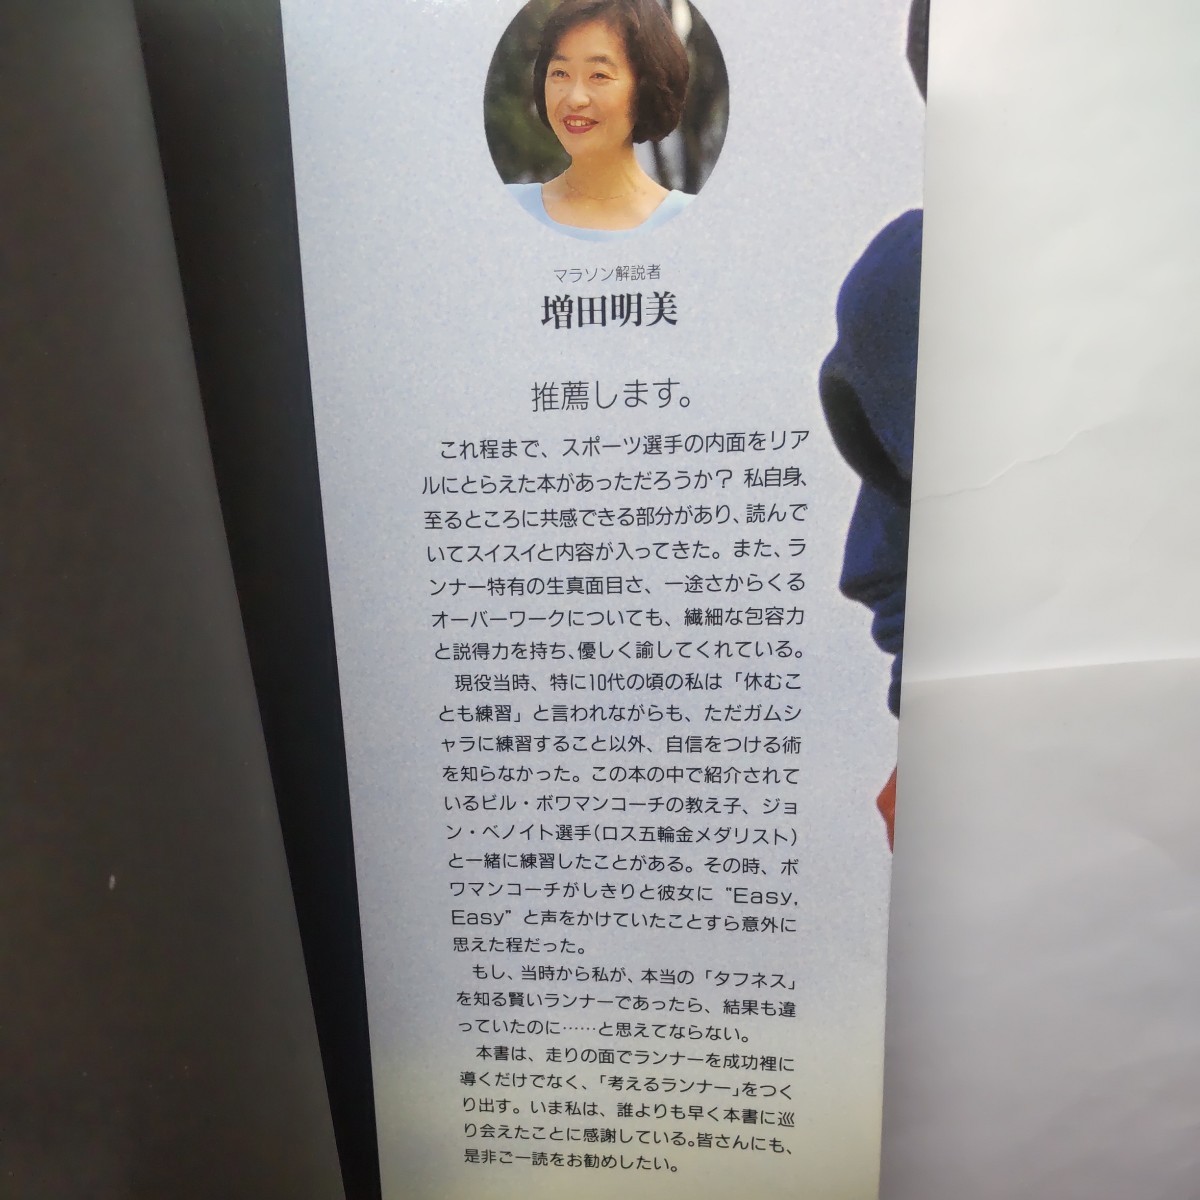 マラソン解説者
増田明美
推薦します。
これ程まで、スポーツ選手の内面をリア
ルにとらえた本があっただろうか？ 私自身、
至るところに共感できる部分があり、読んで
いてスイスイと内容が入ってきた。また、ラ
ンナー特有の生真面目さ、一途さからくる
オーバーワークについても、繊細な包容力
と説得力を持ち、優しく諭してくれている。
現役当時、特に10代の頃の私は「休むこ
とも練習」と言われながらも、ただガムシ
ャラに練習すること以外、自信をつける術
を知らなかった。この本の中で紹介されて
いるビル・ボワマンコーチの教え子、ジョ
ン・ベノイト選手（ロス五輪金メダリスト）
と一緒に練習したことがある。その時、ボ
ワマンコーチがしきりと彼女に“Easy,
Easy”と声をかけていたことすら意外に
思えた程だった。
もし、当時から私が、本当の「タフネス」
を知る賢いランナーであったら、結果も違
っていたのに……と思えてならない。
本書は、走りの面でランナーを成功裡に
導くだけでなく、「考えるランナー」をつく
り出す。いま私は、誰よりも早く本書に巡
り会えたことに感謝している。皆さんにも、
是非ご一読をお勧めしたい。